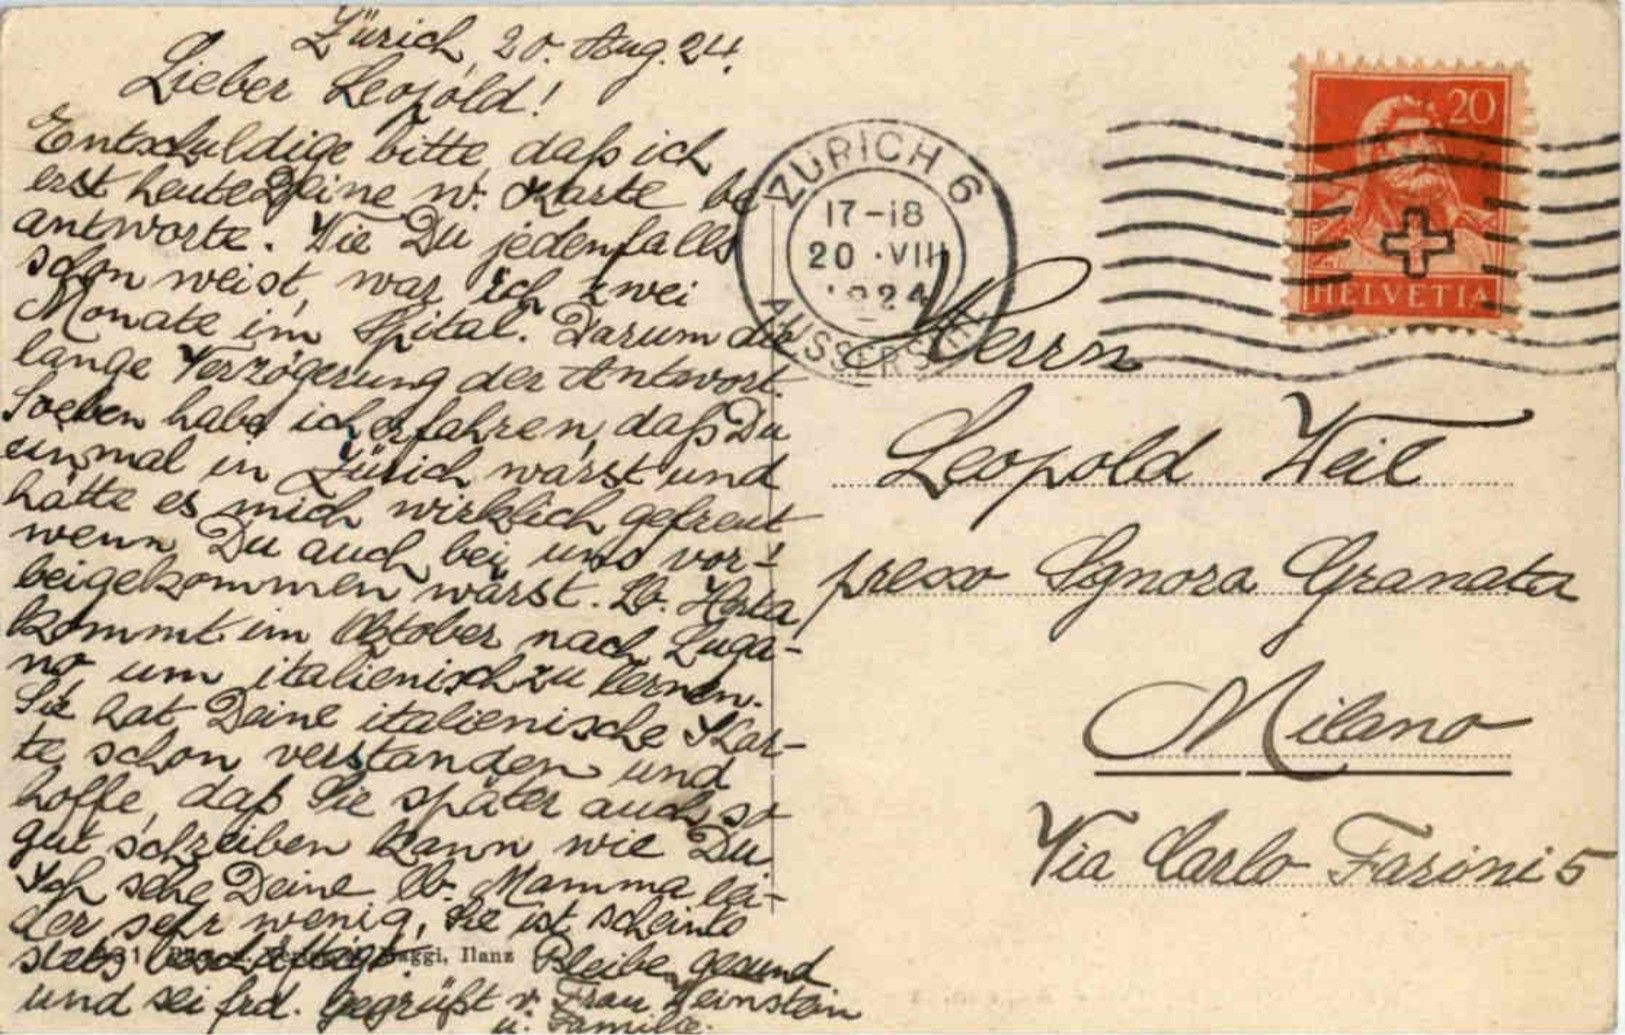 Zürich, 20. Aug. 24.
Lieber Leopold!
Entschuldige bitte daß ich
erst heute Deine w. Karte be
antworte. Wie Du jedenfalls
schon weist, war ich zwei
Monate im Spital. Darum die
lange Verzögerung der Antwort.
Soeben habe ich erfahren, daß Du
einmal in Zürich warst und
hätte es mich wirklich gefreut
wenn Du auch bei uns vor-
beigekommen wärst. Lb. Herta
kommt im Oktober nach Luga-
no um italienisch zu lernen.
Sie hat Deine italienische Kar-
te schon verstanden und
hoffe, daß Sie später auch so
gut schreiben kann wie Du
Ich sehe Deine lb. Mamma lei-
der sehr wenig, Sie ist scheints
stets beschäftigt. Bleibe gesund
und sei frd. gegrüßt v. Frau Weinstein
u. Familie.
Maggi, Ilanz
ZÜRICH 6
17-18
20.VIII
1924
AUSSERSIHL
20
HELVETIA
Herrn
Leopold Weil
presso Signora Granata
Milano
Via Carlo Farini 5